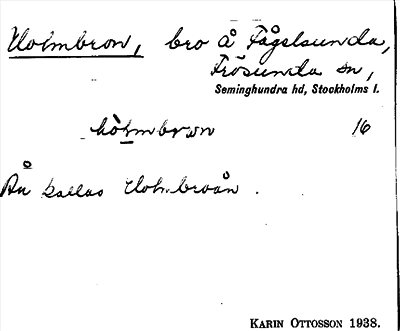 Holmbron, bro å Fågelsunda,
Frösunda sn,
Seminghundra hd, Stockholms l.
hòlmbrωn 16
Ån kallas Holmbroån.
KARIN OTTOSSON 1938.